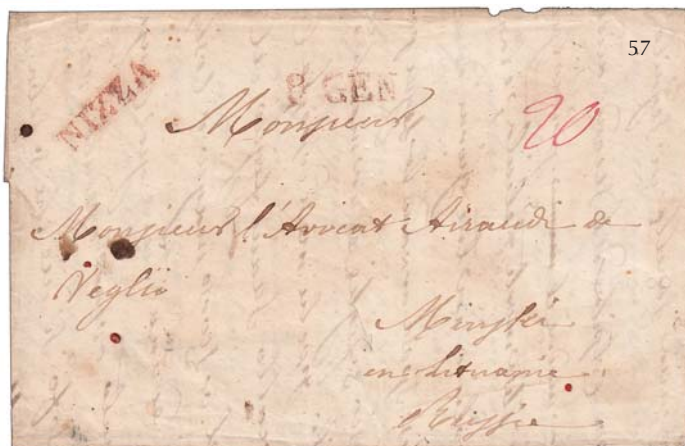 57
NIZZA
8 GEN
Monsieur
20
Monsieur l'Avocat Airaudi de
Veglio
Minski
en Lituanie
Russie